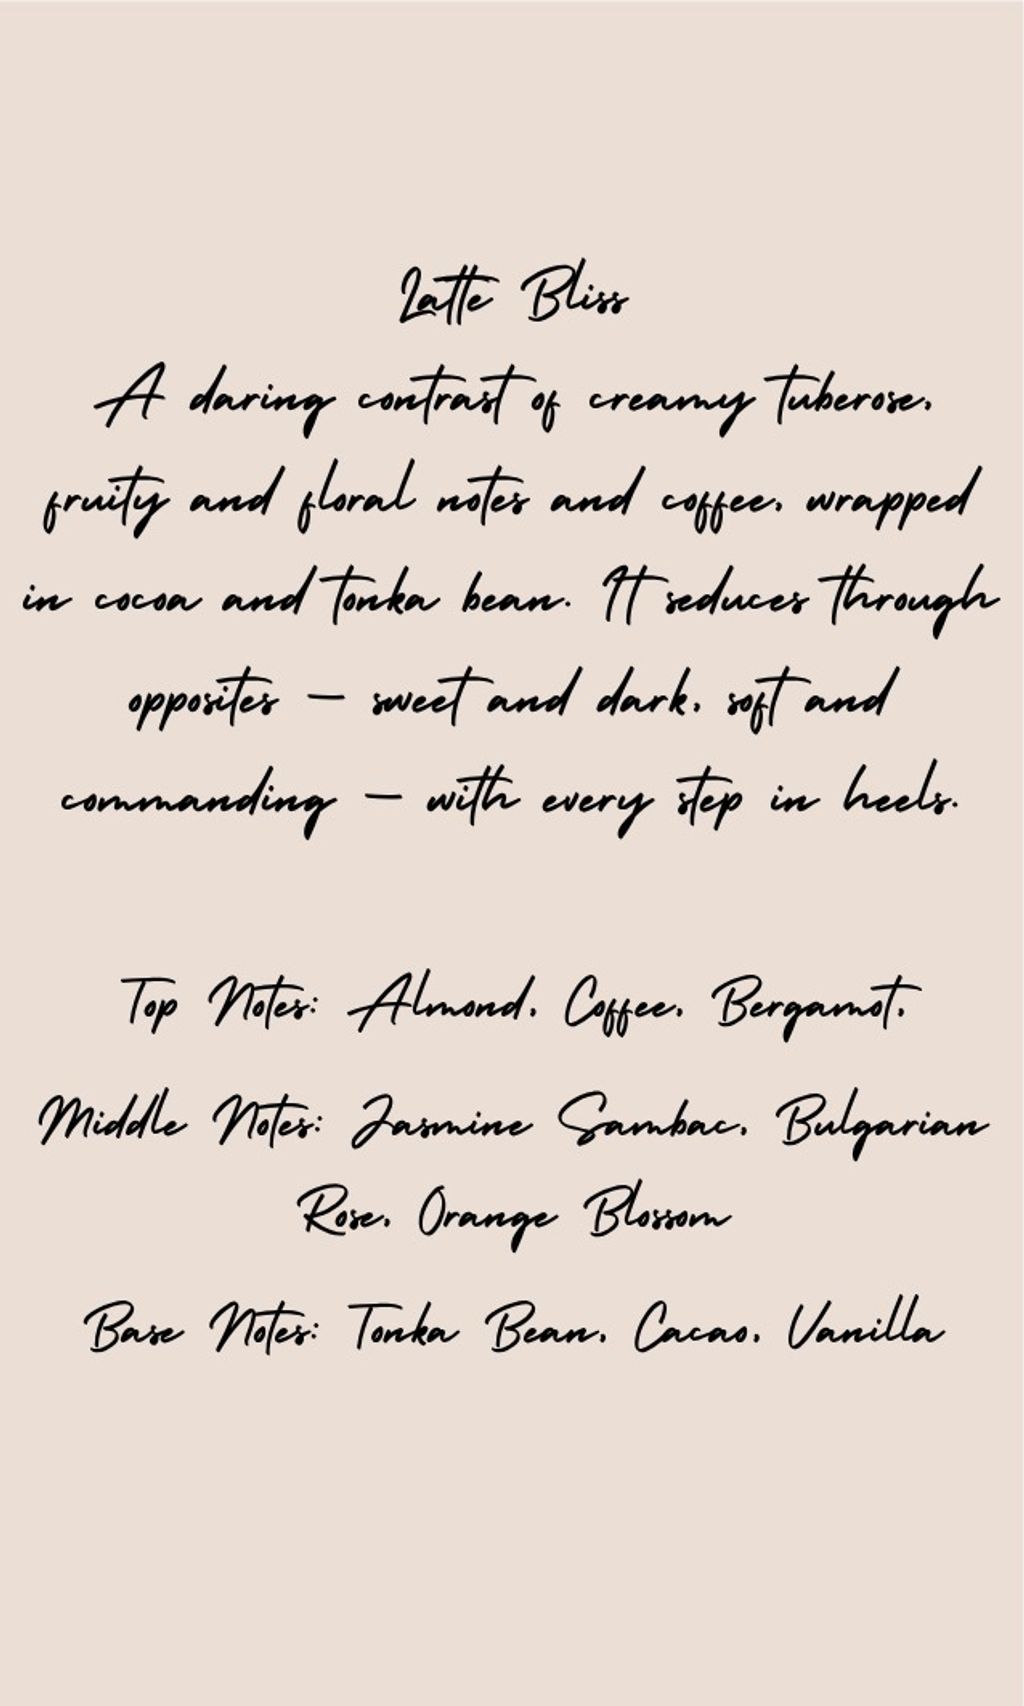 Latte Bliss
A daring contrast of creamy tuberose,
fruity and floral notes and coffee, wrapped
in cocoa and tonka bean. It seduces through
opposites — sweet and dark, soft and
commanding — with every step in heels.
Top Notes: Almond, Coffee, Bergamot,
Middle Notes: Jasmine Sambac, Bulgarian
Rose, Orange Blossom
Base Notes: Tonka Bean, Cacao, Vanilla